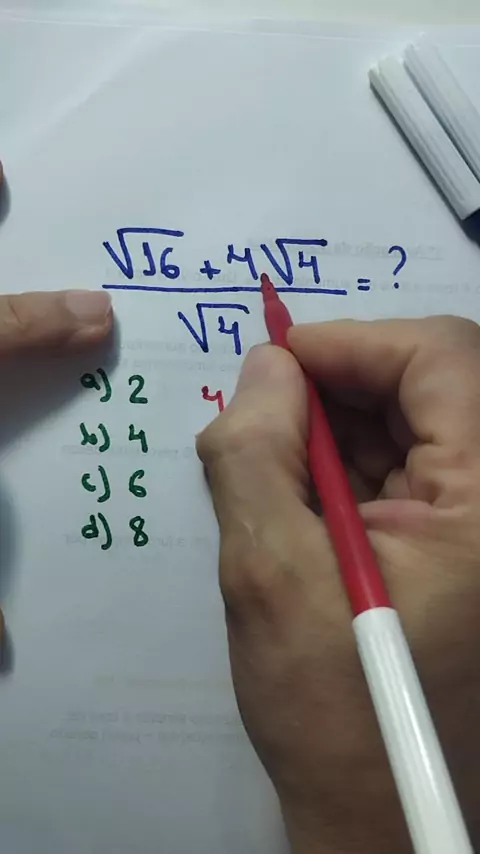 √16 + 4√4 = ?
√4
a) 2
4
b) 4
c) 6
d) 8